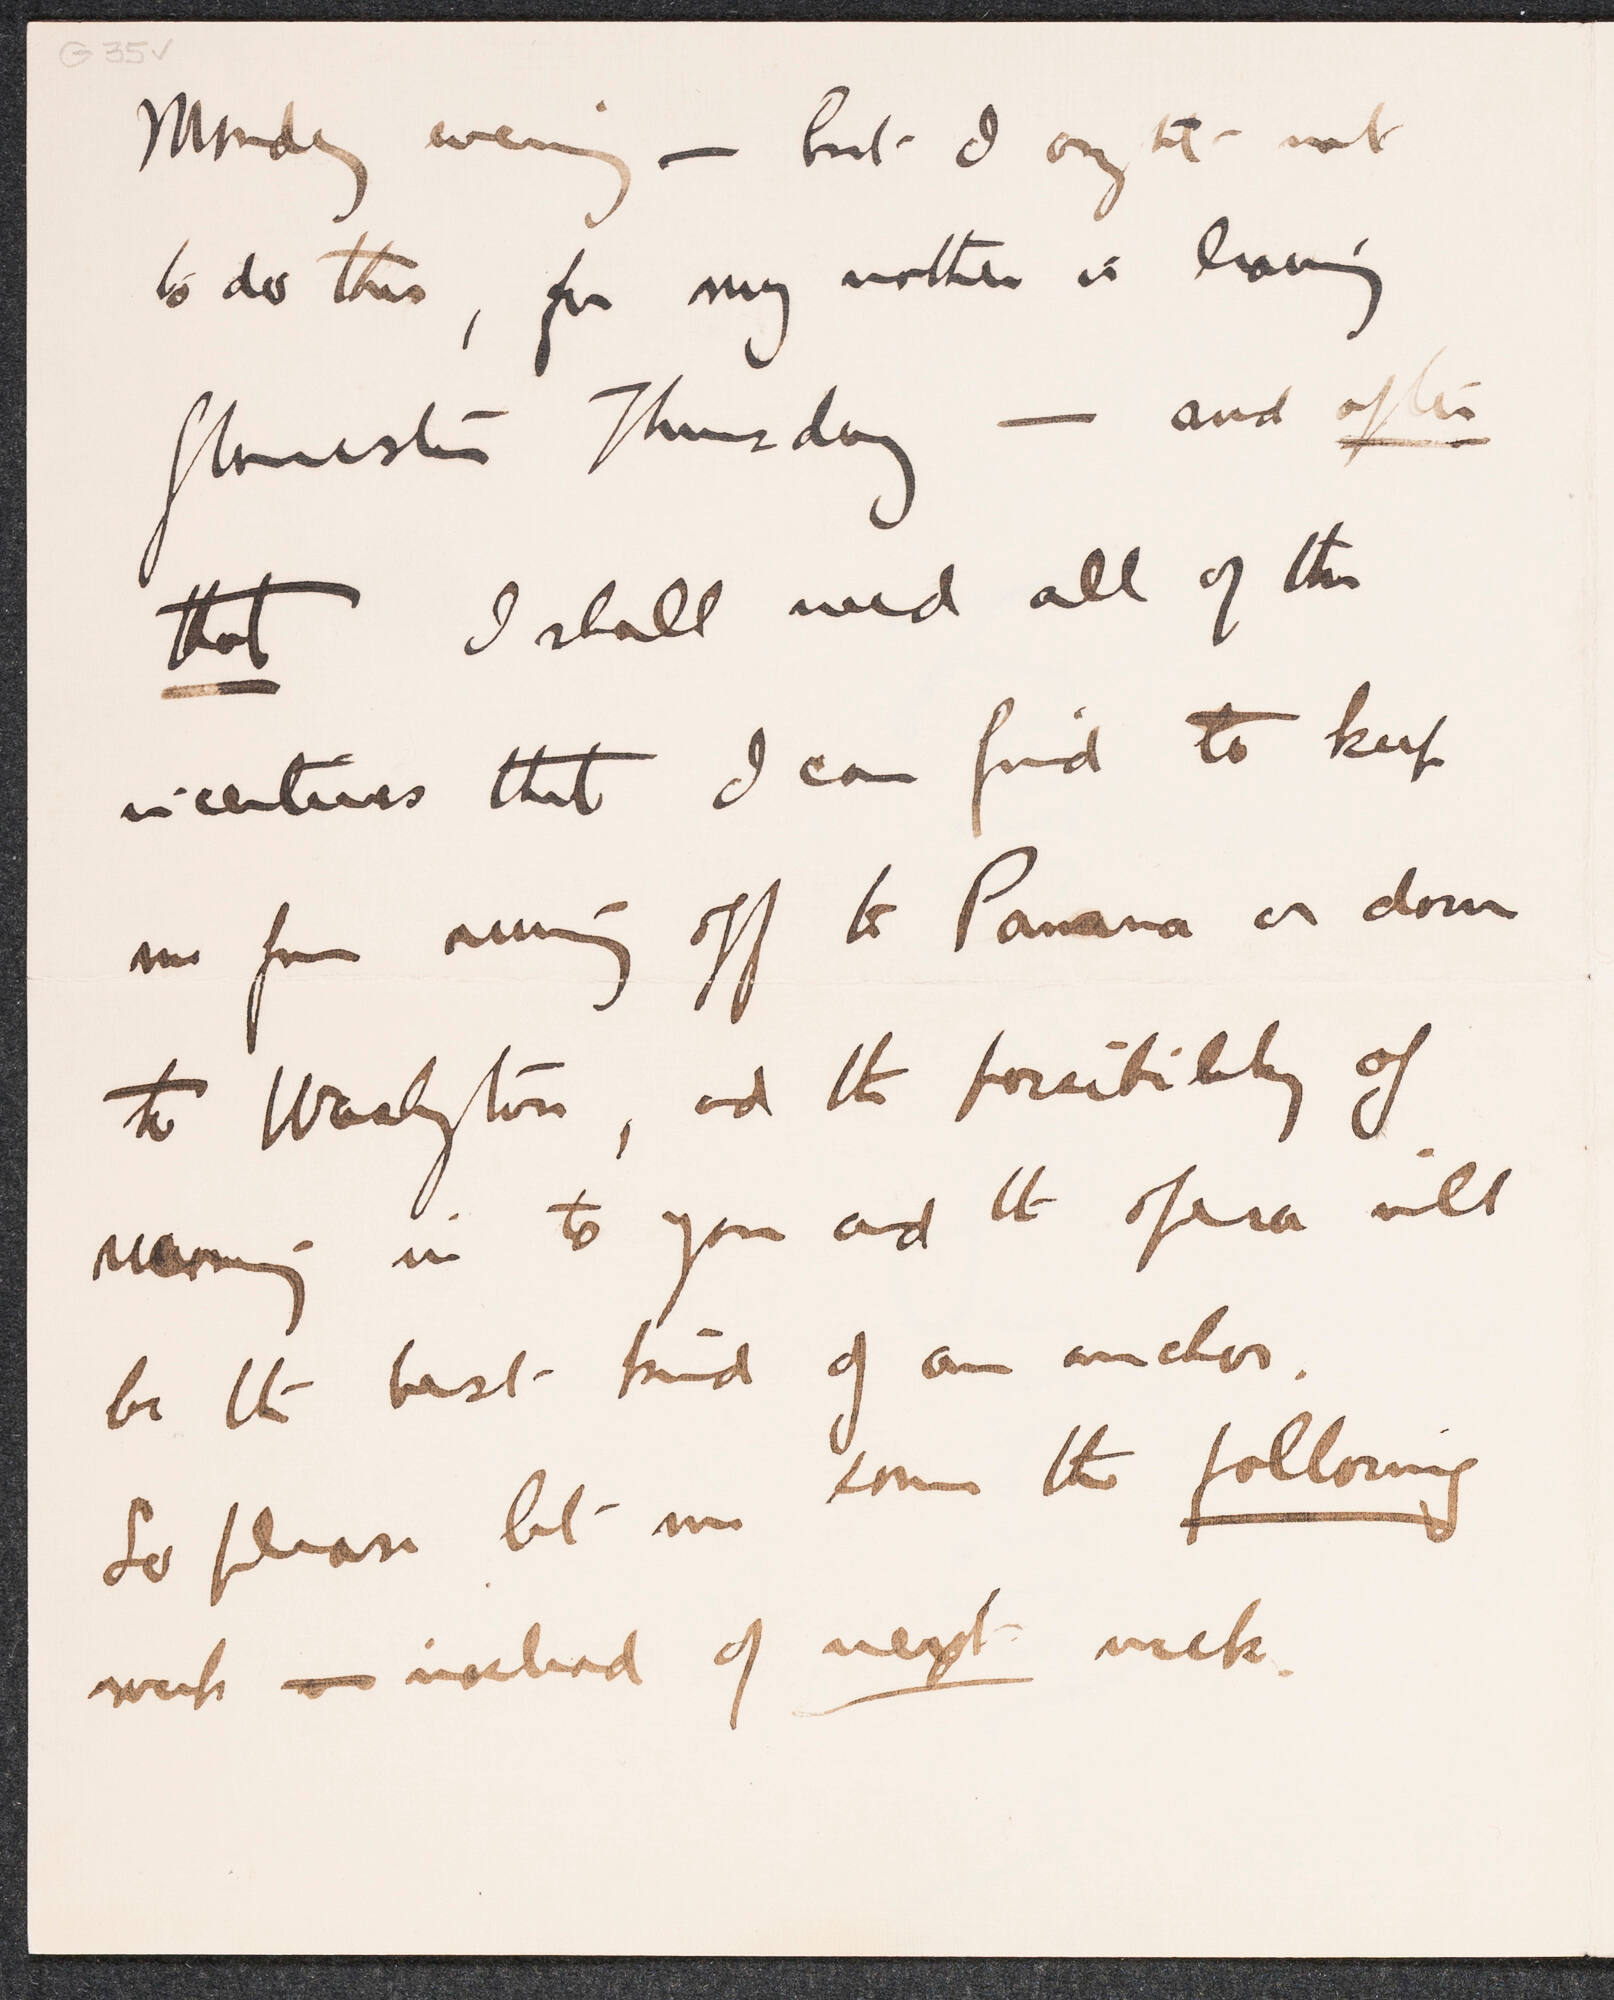 G 35v
Monday evening — but I ought not
to do this, for my mother is leaving
Gloucester Thursday — and after
that I shall need all of the
incentives that I can find to keep
me from running off to Panama or down
to Washington, and the possibility of
running in to you and the opera will
be the best kind of an anchor.
So please let me come the following
week — instead of next week.